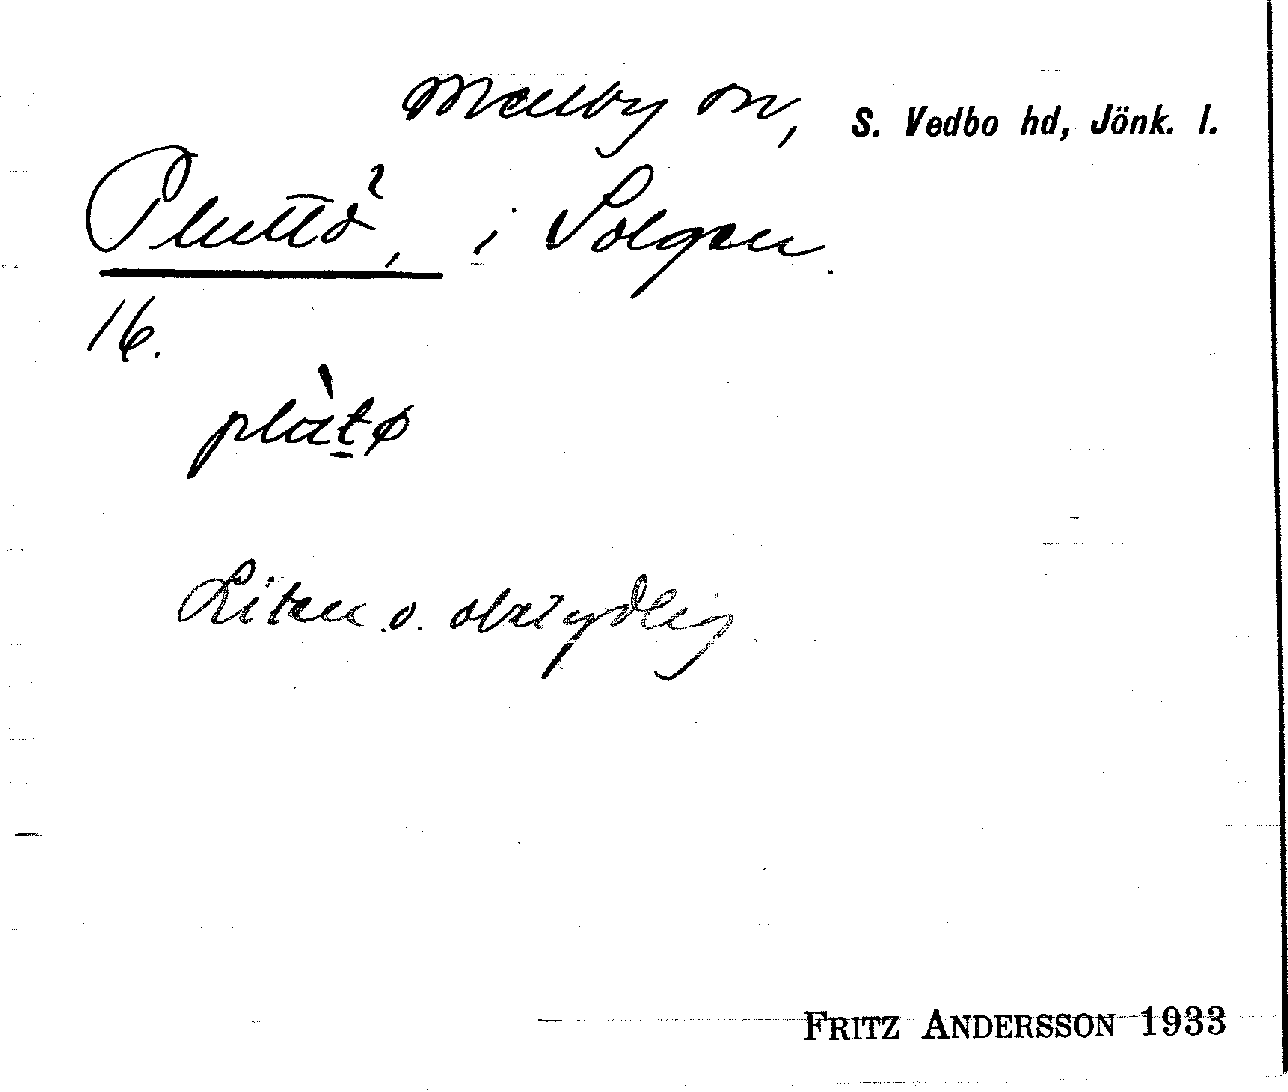 Mellby sn, S. Vedbo hd, Jönk. l.
Pluttö?, i Solgen.
16.
plùtø
Liten o. obetydlig
FRITZ ANDERSSON 1933